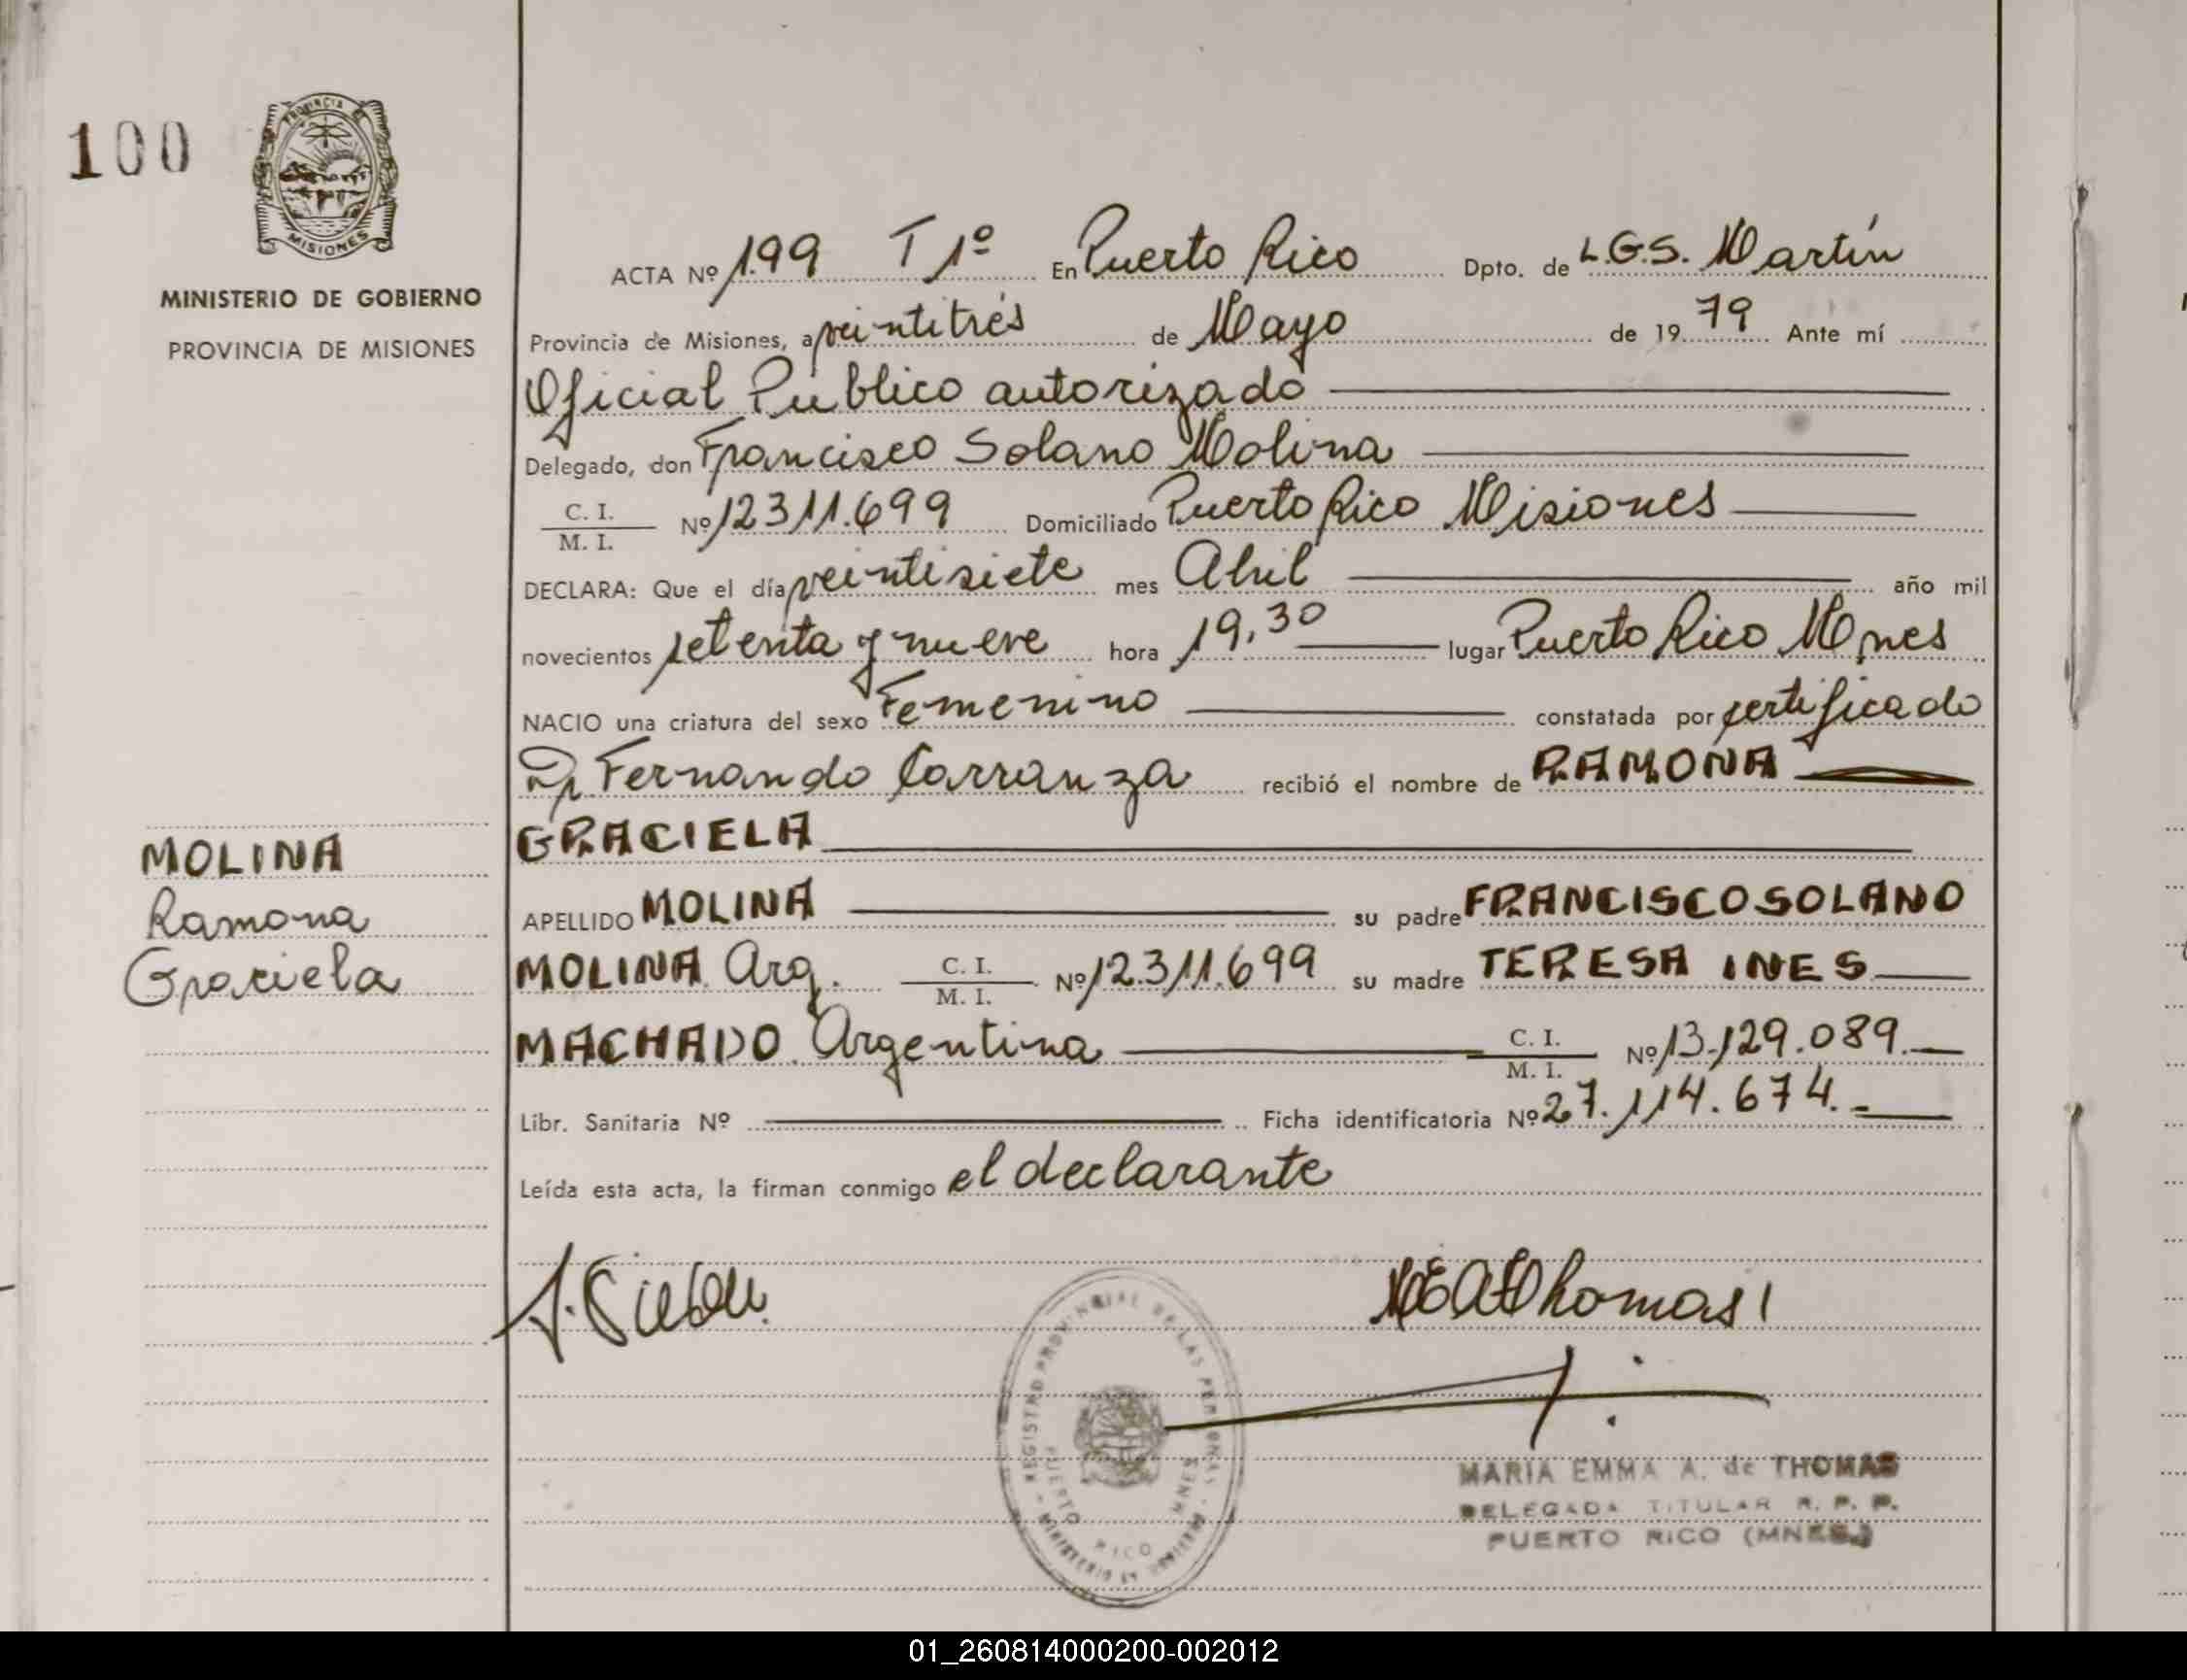 100
PROVINCIA DE
MISIONES
MINISTERIO DE GOBIERNO
PROVINCIA DE MISIONES
MOLINA
Ramona
Graciela
ACTA Nº 199 T 1º En Puerto Rico Dpto. de L.G.S. Martín
Provincia de Misiones, a veintitrés de Mayo de 19 79 Ante mí
Oficial Público autorizado
Delegado, don Francisco Solano Molina
C. I. / M. I. Nº 12311.699 Domiciliado Puerto Rico Misiones
DECLARA: Que el día veintisiete mes Abril año mil
novecientos setenta y nueve hora 19,30 lugar Puerto Rico Mnes
NACIO una criatura del sexo Femenino constatada por certificado
Dr Fernando Carranza recibió el nombre de RAMONA
GRACIELA
APELLIDO MOLINA su padre FRANCISCO SOLANO
MOLINA Arg. C. I. / M. I. Nº 12.311.699 su madre TERESA INES
MACHADO. Argentina C. I. / M. I. Nº 13.129.089.
Libr. Sanitaria Nº Ficha identificatoria Nº 27.114.674.-
Leída esta acta, la firman conmigo el declarante
MEAThomas
REGISTRO PROVINCIAL DE LAS PERSONAS - MINISTERIO DE GOBIERNO -
PUERTO RICO MNES
MARIA EMMA A. de THOMAS
DELEGADA TITULAR R. P. P.
PUERTO RICO (MNES.)
01_260814000200-002012